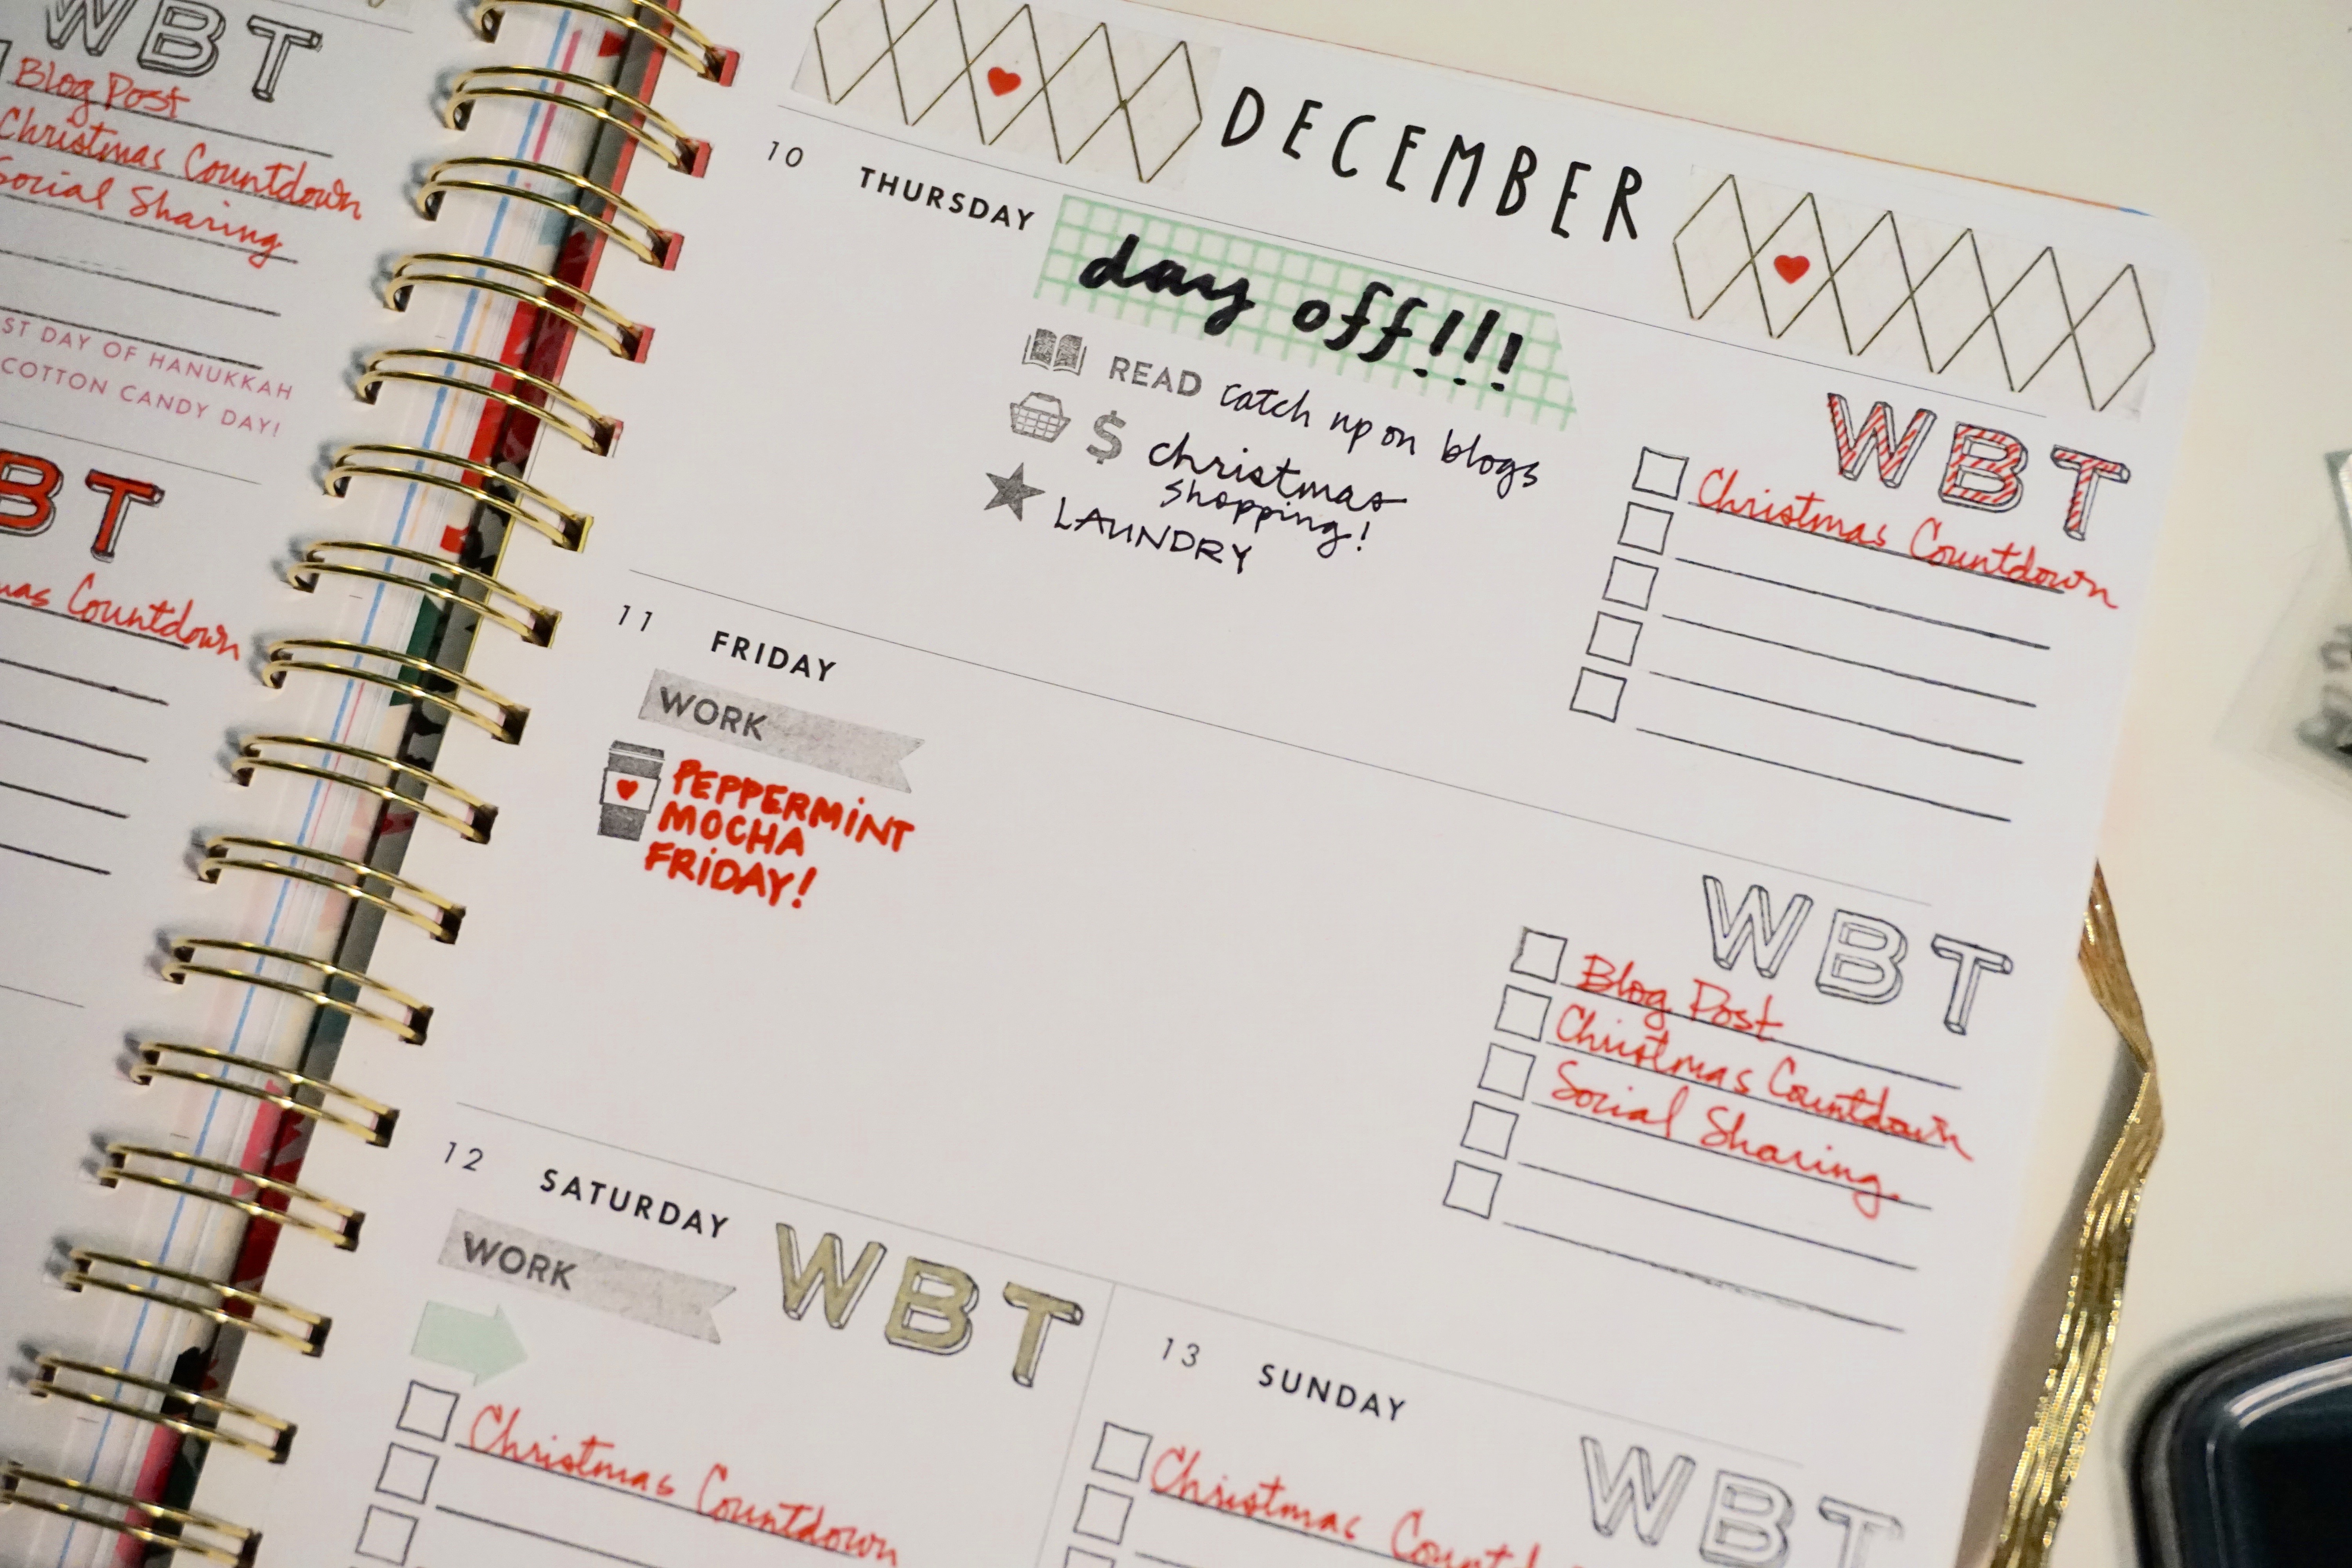 WBT
Blog Post
Christmas Countdown
Social Sharing
DAY OF HANUKKAH
COTTON CANDY DAY!
BT
Countdown
DECEMBER
10 THURSDAY
day off!!!
READ catch up on blogs
$ christmas
shopping!
LAUNDRY
WBT
Christmas Countdown
11 FRIDAY
WORK
PEPPERMINT
MOCHA
FRIDAY!
WBT
Blog Post
Christmas Countdown
Social Sharing
12 SATURDAY
WORK
WBT
Christmas Countdown
13 SUNDAY
WBT
Christmas